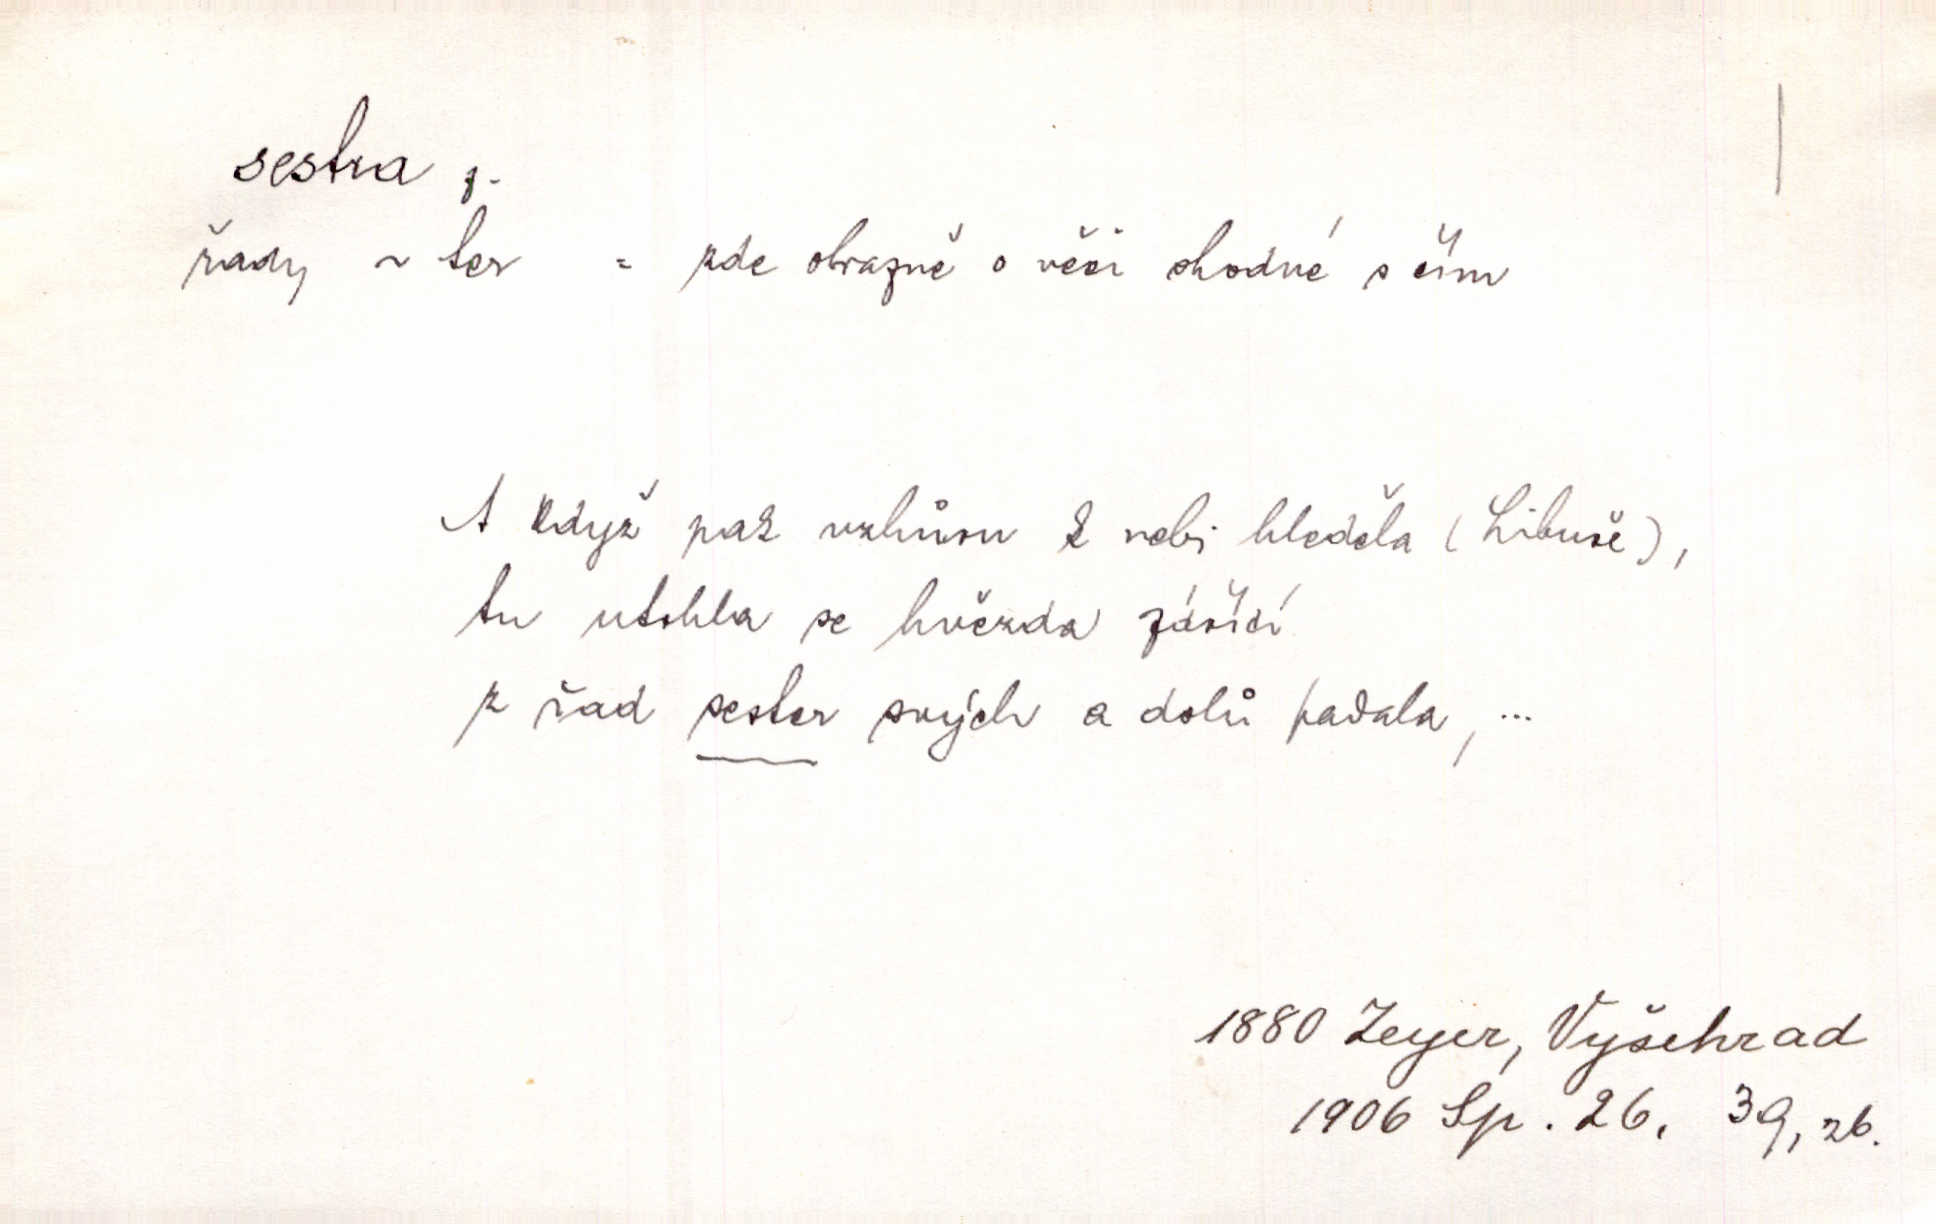 sestra f.
řady ~ ter = zde obrazně o věci shodné s čím
A když pak vzhůru k nebi hleděla (Libuše),
tu utrhla se hvězda zářící
z řad sester svých a dolů padala, ...
1880 Zeyer, Vyšehrad
1906 Sp. 26. 39, zb.